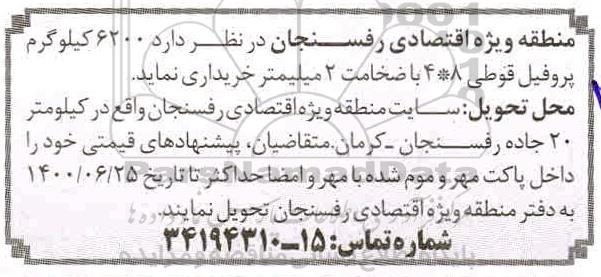 منطقه ویژه اقتصادی رفسنجان در نظر دارد ۶۲۰۰ کیلوگرم
پروفیل قوطی ۸*۴ با ضخامت ۲ میلیمتر خریداری نماید.
محل تحویل: سایت منطقه ویژه اقتصادی رفسنجان واقع در کیلومتر
۲۰ جاده رفسنجان - کرمان. متقاضیان، پیشنهادهای قیمتی خود را
داخل پاکت مهر و موم شده با مهر و امضا حداکثر تا تاریخ ۱۴۰۰/۰۶/۲۵
به دفتر منطقه ویژه اقتصادی رفسنجان تحویل نمایند.
شماره تماس: ۱۵-۳۴۱۹۴۳۱۰